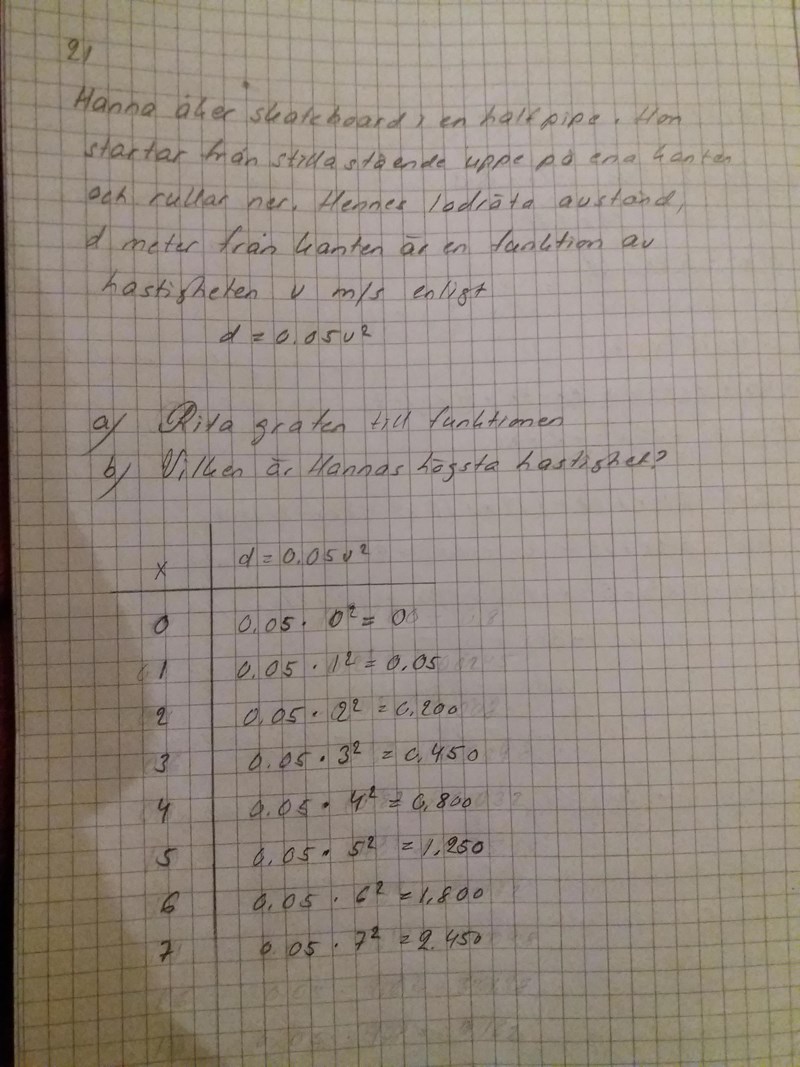 21
Hanna åker skateboard i en halfpipe. Hon
startar från stillastående uppe på ena kanten
och rullar ner. Hennes lodräta avstånd,
d meter från kanten är en funktion av
hastigheten v m/s enligt
d = 0.05v²
a) Rita grafen till funktionen
b) Vilken är Hannas högsta hastighet?
x d = 0.05v²
0 0.05 · 0² = 0
1 0.05 · 1² = 0.05
2 0.05 · 2² = 0.200
3 0.05 · 3² = 0.450
4 0.05 · 4² = 0.800
5 0.05 · 5² = 1.250
6 0.05 · 6² = 1.800
7 0.05 · 7² = 2.450